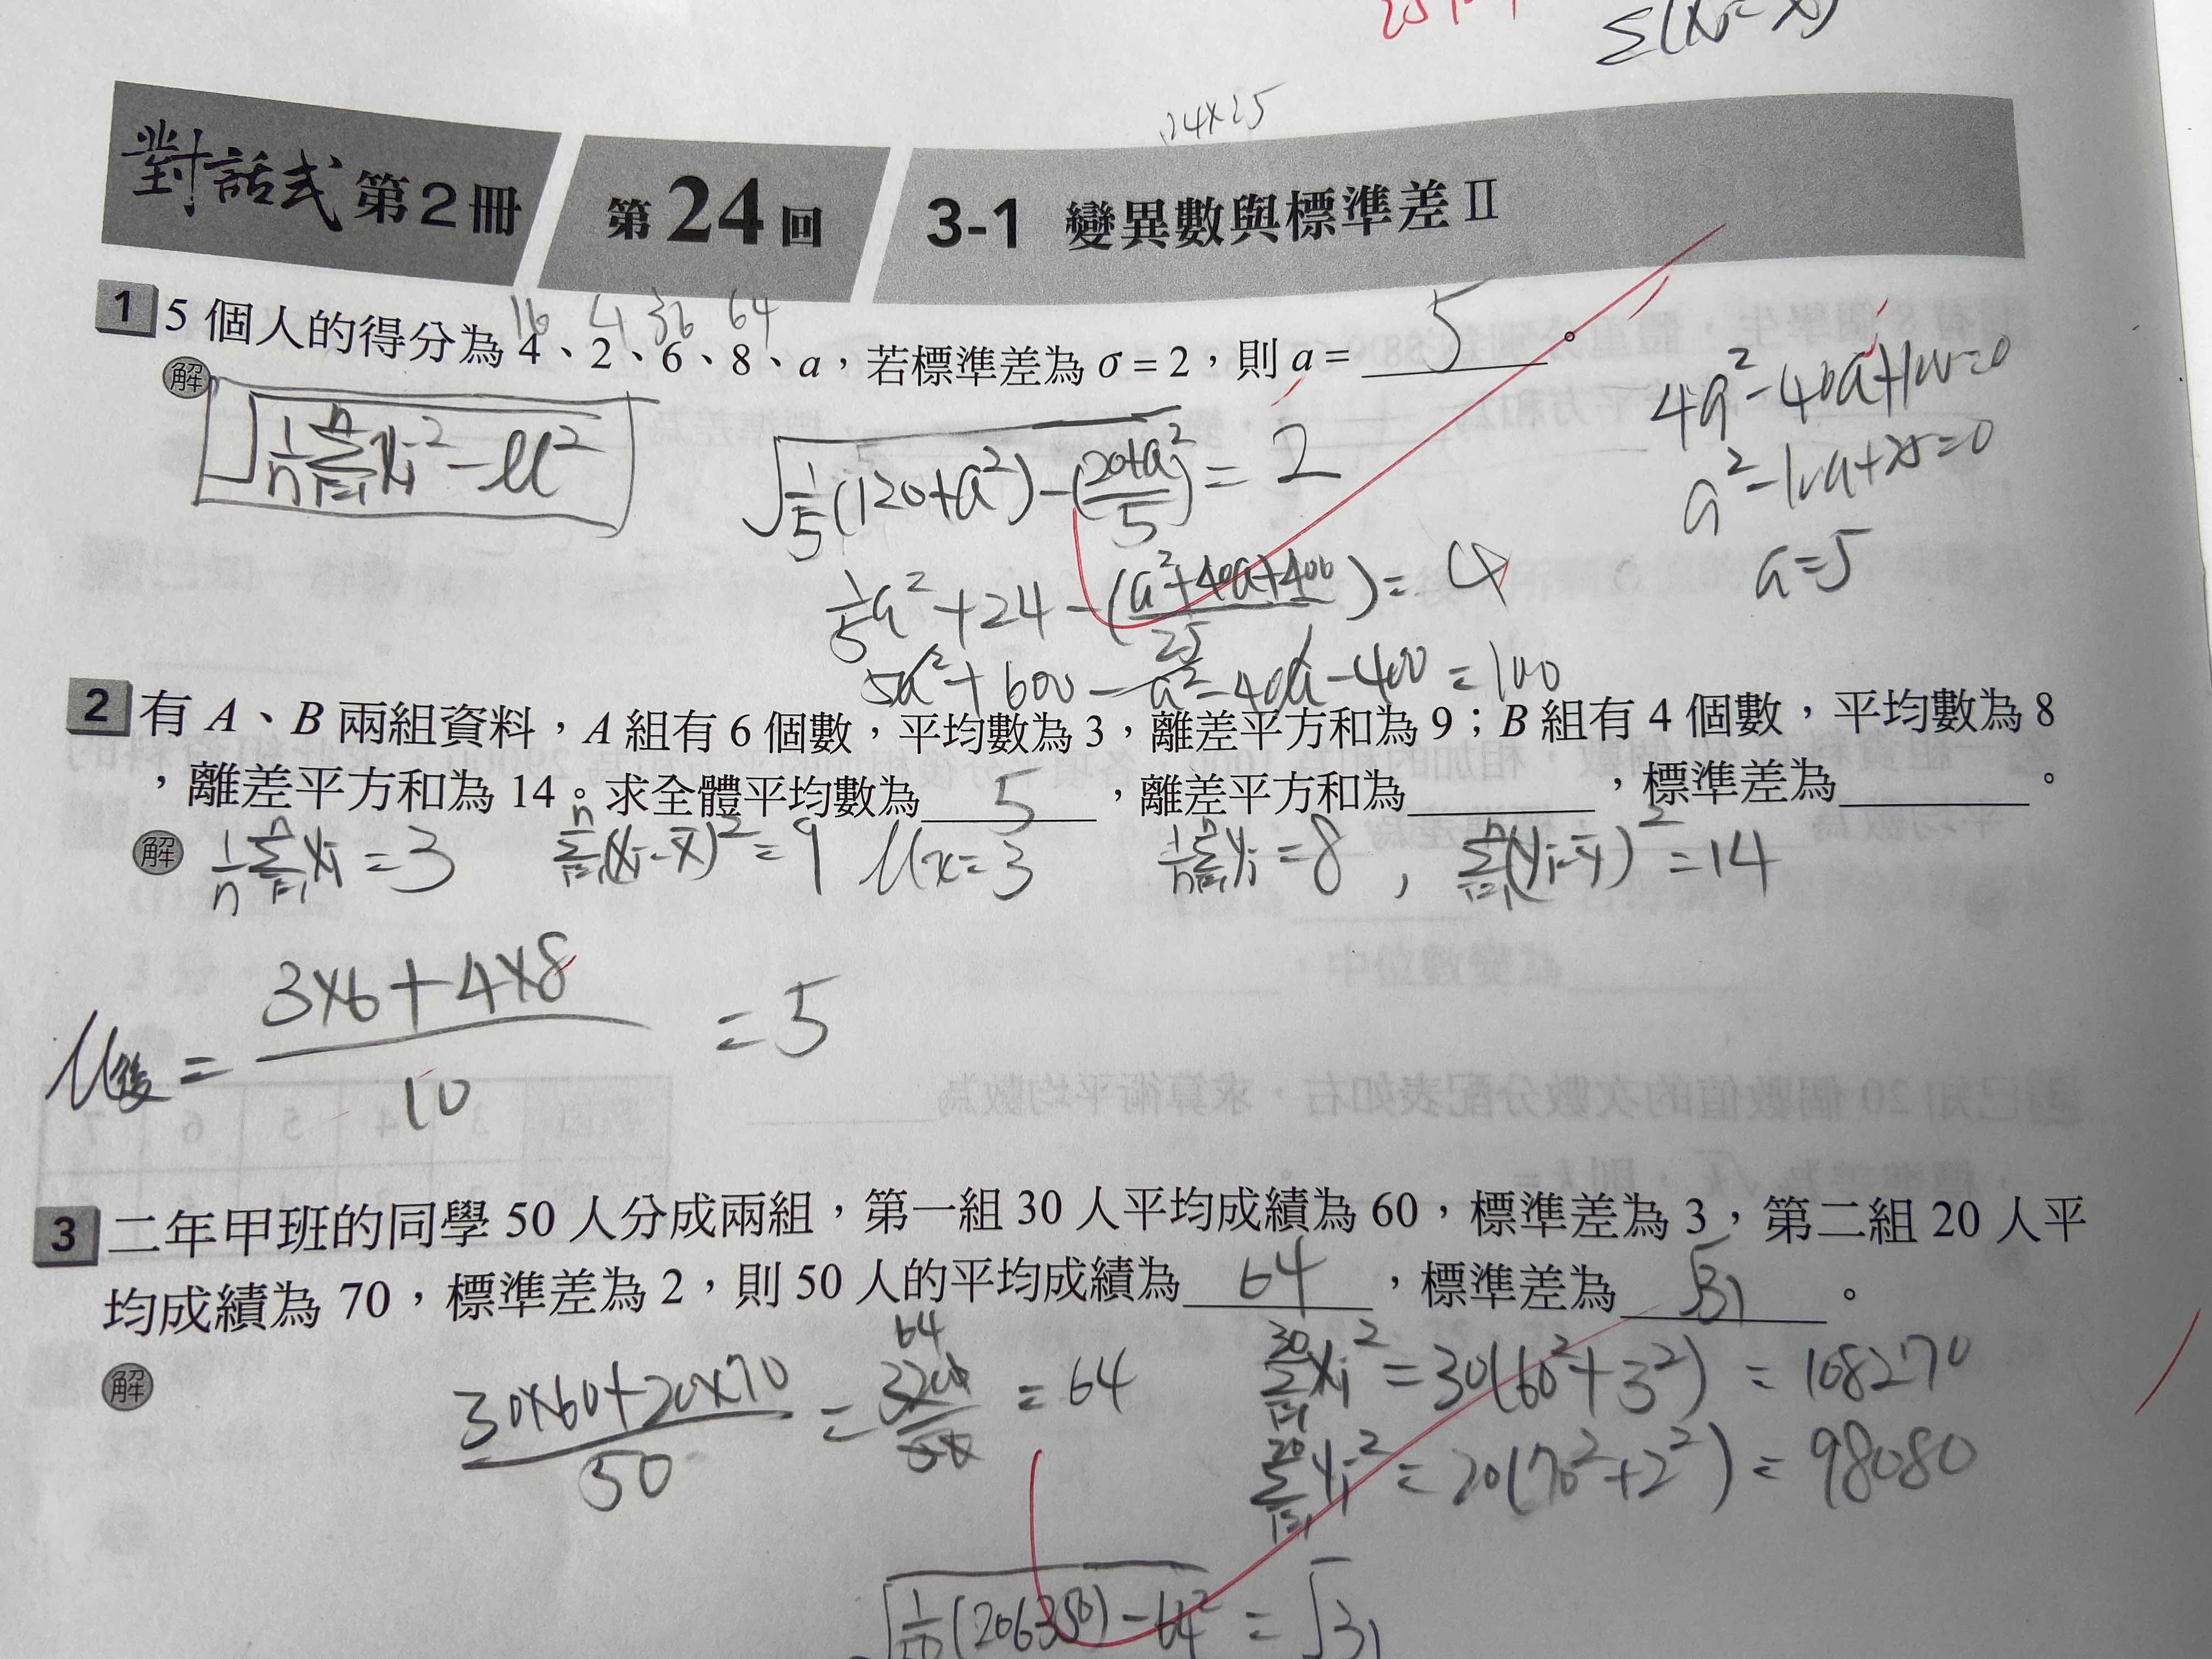 Σ(xᵢ-x)
24×25
對話式 第2冊 第24回 3-1 變異數與標準差Ⅱ
16 4 36 64
1 5 個人的得分為 4、2、6、8、a，若標準差為 σ = 2，則 a = 5 。
解
√(1/n Σ(i=1→n) xᵢ² - μ²)
√(1/5(120+a²)-((20+a)/5)²) = 2
1/5a²+24-((a²+40a+400)/25) = 4
5a²+600-a²-40a-400=100
4a²-40a+100=0
a²-10a+25=0
a=5
2 有 A、B 兩組資料，A 組有 6 個數，平均數為 3，離差平方和為 9；B 組有 4 個數，平均數為 8
，離差平方和為 14。求全體平均數為 5 ，離差平方和為 ，標準差為 。
解 1/n Σ(i=1→n) xᵢ = 3 Σ(i=1→n)(xᵢ-x̄)² = 9 μx=3 1/n Σ(i=1→n) yᵢ = 8 , Σ(i=1→n)(yᵢ-ȳ)² = 14
μ後 = (3×6+4×8)/10 = 5
3 二年甲班的同學 50 人分成兩組，第一組 30 人平均成績為 60，標準差為 3，第二組 20 人平
均成績為 70，標準差為 2，則 50 人的平均成績為 64 ，標準差為 √31 。
解
(30×60+20×70)/50 = 3200/50 = 64
64
Σ(i=1→30) xᵢ² = 30(60²+3²) = 108270
Σ(i=1→20) yᵢ² = 20(70²+2²) = 98080
√(1/50(206350)-64²) = √31